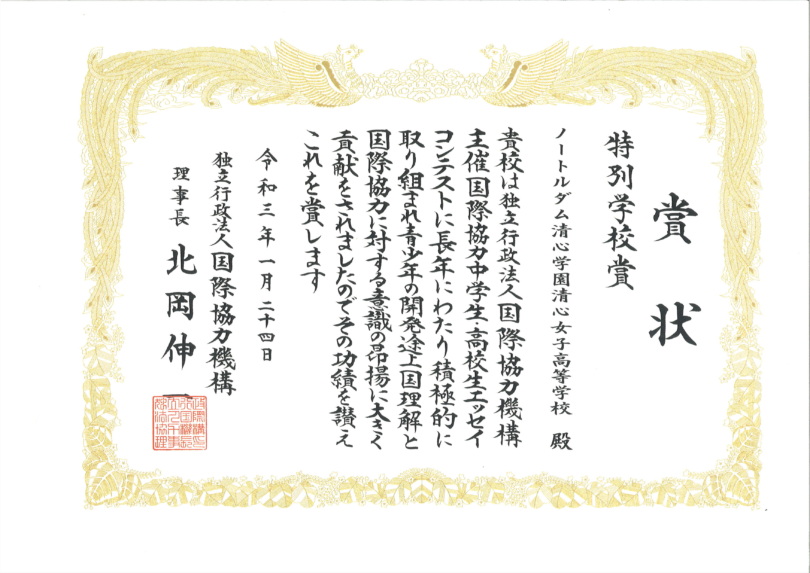 賞状
特別学校賞
ノートルダム清心学園清心女子高等学校 殿
貴校は独立行政法人国際協力機構
主催国際協力中学生・高校生エッセイ
コンテストに長年にわたり積極的に
取り組まれ青少年の開発途上国理解と
国際協力に対する意識の昂揚に大きく
貢献をされましたのでその功績を讃え
これを賞します
令和三年一月二十四日
独立行政法人国際協力機構
理事長 北岡伸一